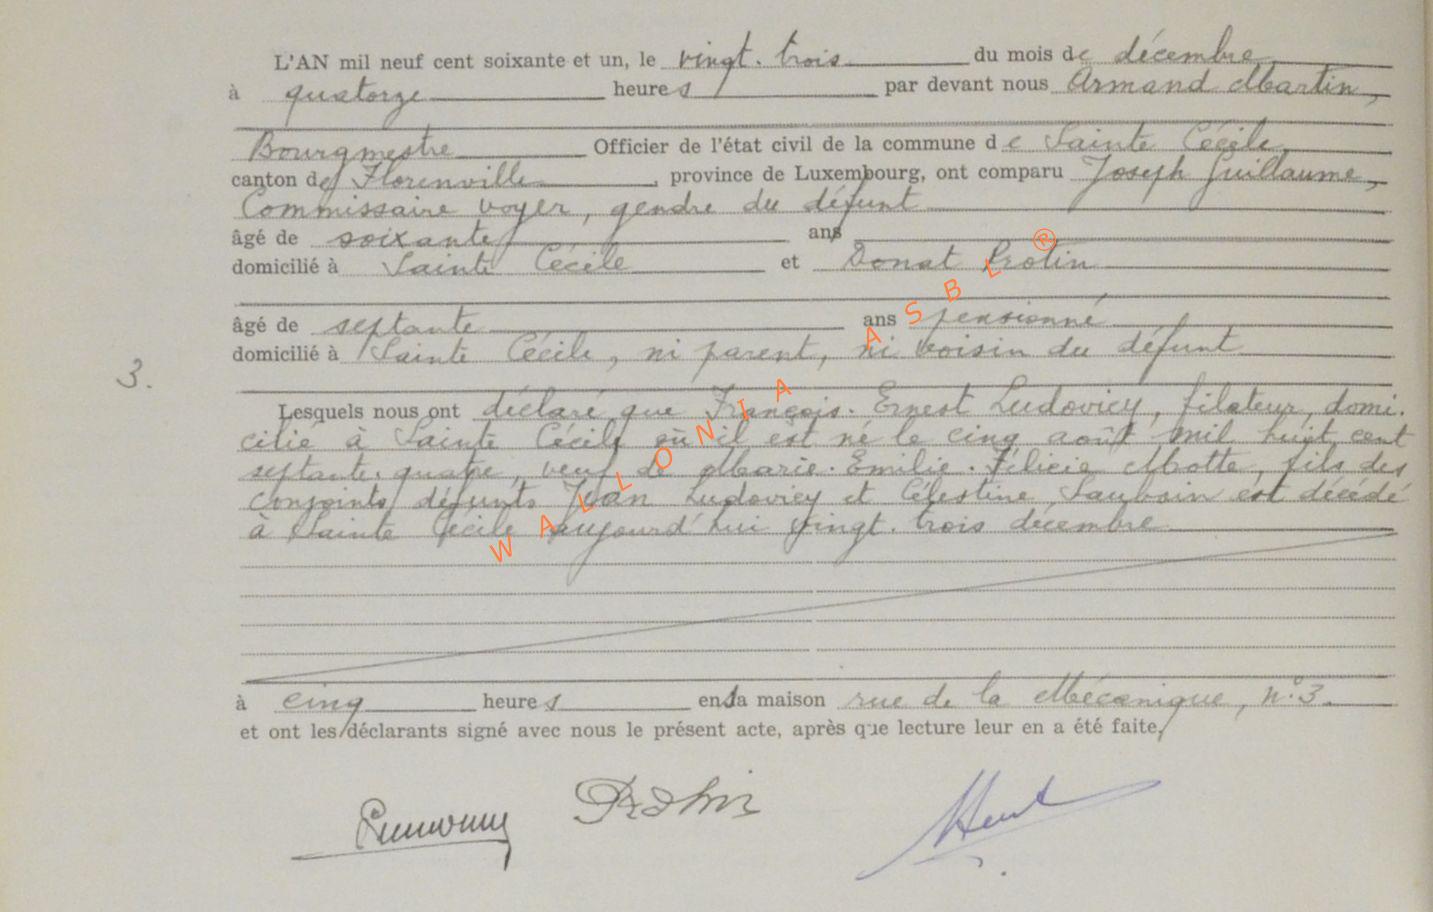 L'AN mil neuf cent soixante et un, le vingt-trois du mois de décembre
à quatorze heures par devant nous Armand Martin,
Bourgmestre Officier de l'état civil de la commune de Sainte Cécile,
canton de Florenville, province de Luxembourg, ont comparu Joseph Guillaume,
Commissaire voyer, gendre du défunt
âgé de soixante ans
domicilié à Sainte Cécile et Donat Protin
âgé de septante ans pensionné
domicilié à Sainte Cécile, ni parent, ni voisin du défunt
3.
Lesquels nous ont déclaré que François-Ernest Ludovicy, filateur, domi-
cilié à Sainte Cécile où il est né le cinq août mil huit cent
septante-quatre, veuf de Marie-Emilie-Félicie Motte, fils des
conjoints défunts Jean Ludovicy et Célestine Saubain est décédé
à Sainte Cécile aujourd'hui vingt-trois décembre
à cinq heures en sa maison rue de la Mécanique, n°3.
et ont les déclarants signé avec nous le présent acte, après que lecture leur en a été faite,
Protin
WALLONIA ASBL ®